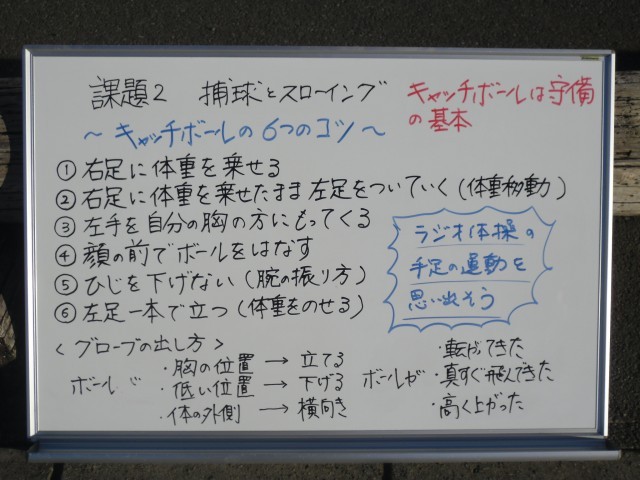 課題2 捕球とスローイング
キャッチボールは守備
の基本
～キャッチボールの6つのコツ～
① 右足に体重を乗せる
② 右足に体重を乗せたまま左足をついていく(体重移動)
③ 左手を自分の胸の方にもってくる
④ 顔の前でボールをはなす
⑤ ひじを下げない(腕の振り方)
⑥ 左足一本で立つ(体重をのせる)
ラジオ体操の
手足の運動を
思い出そう
<グローブの出し方>
ボールが
・胸の位置 → 立てる
・低い位置 → 下げる
・体の外側 → 横向き
ボールが
・転がってきた
・真すぐ飛んできた
・高く上がった